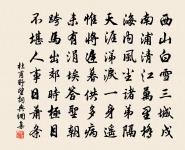 西山白雪三城戍
南浦清江萬里橋
海內風塵諸弟隔
天涯涕淚一身遙
惟將遲暮供多病
未有涓埃答聖朝
跨馬出郊時極目
不堪人事日蕭條
杜甫野望詞典網集